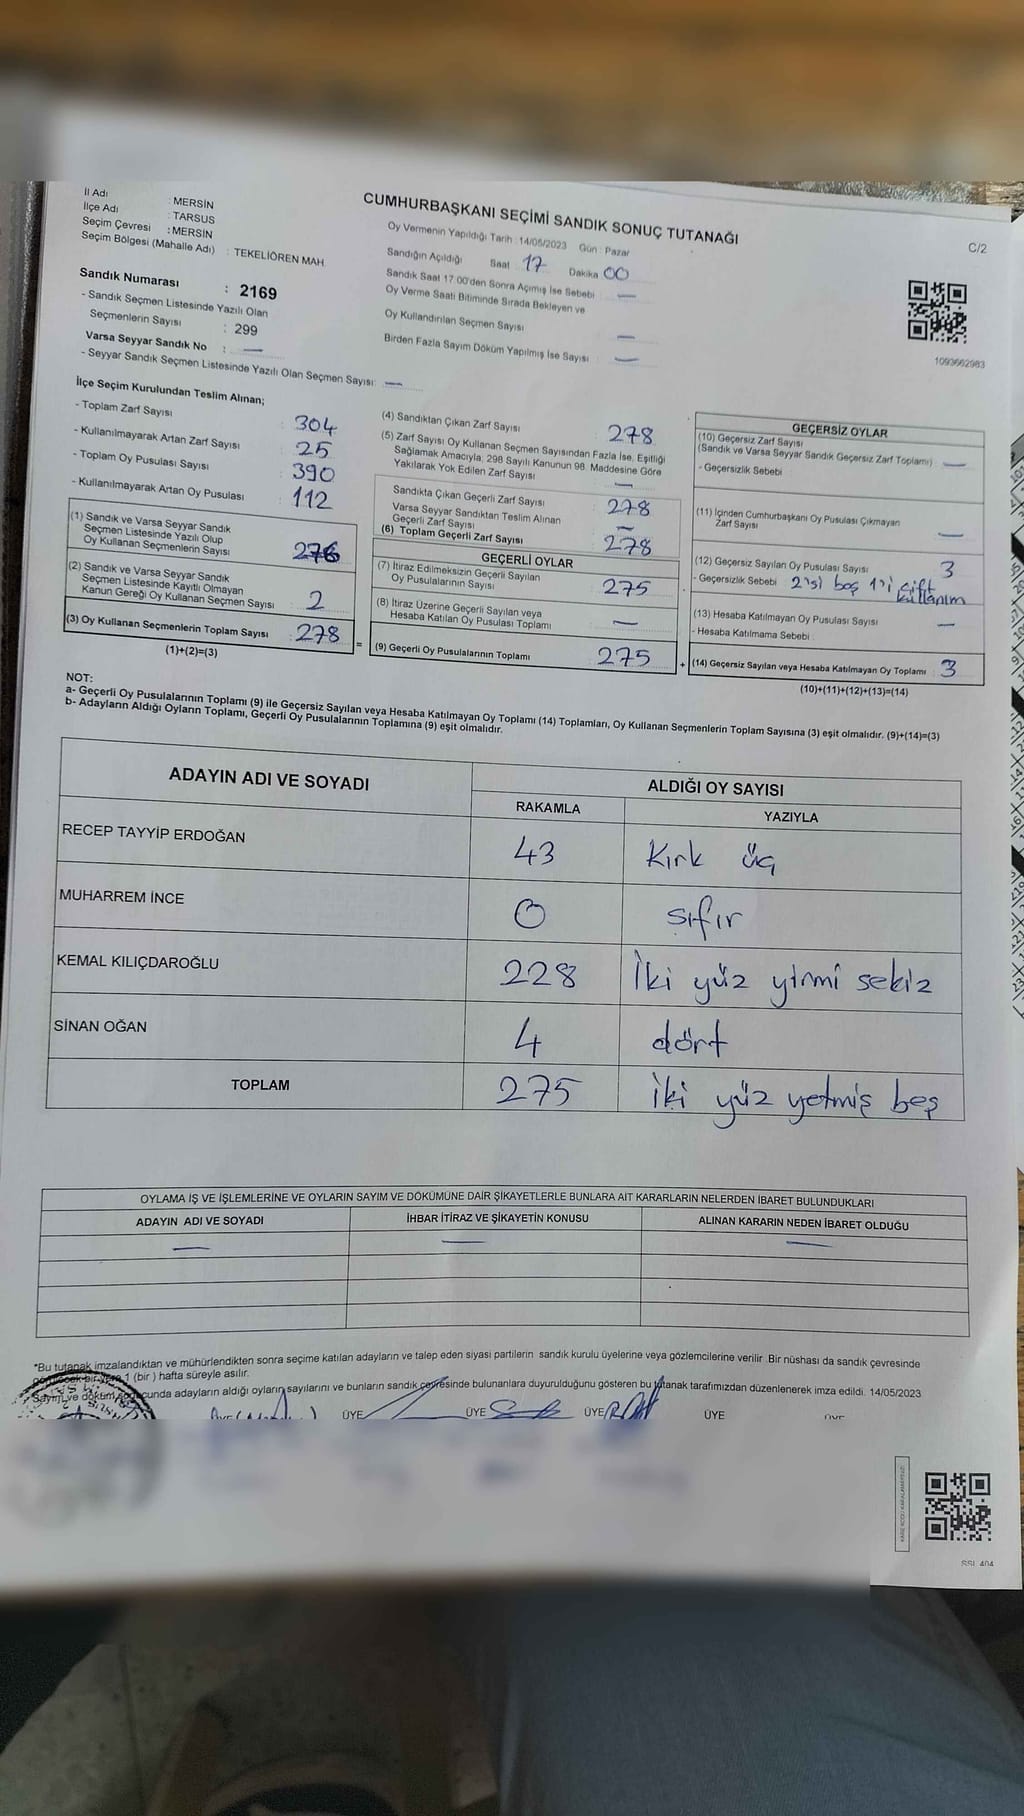 İl Adı : MERSİN
İlçe Adı : TARSUS
Seçim Çevresi : MERSİN
Seçim Bölgesi (Mahalle Adı) : TEKELİÖREN MAH.
Sandık Numarası : 2169
- Sandık Seçmen Listesinde Yazılı Olan
Seçmenlerin Sayısı : 299
Varsa Seyyar Sandık No : —
- Seyyar Sandık Seçmen Listesinde Yazılı Olan Seçmen Sayısı: —
CUMHURBAŞKANI SEÇİMİ SANDIK SONUÇ TUTANAĞI
Oy Vermenin Yapıldığı Tarih : 14/05/2023 Gün : Pazar
Sandığın Açıldığı Saat 17 Dakika 00
Sandık Saat 17:00'den Sonra Açımış İse Sebebi —
Oy Verme Saati Bitiminde Sırada Bekleyen ve
Oy Kullandırılan Seçmen Sayısı —
Birden Fazla Sayım Döküm Yapılmış İse Sayısı —
C/2
1093662983
İlçe Seçim Kurulundan Teslim Alınan;
- Toplam Zarf Sayısı : 304
- Kullanılmayarak Artan Zarf Sayısı : 25
- Toplam Oy Pusulası Sayısı : 390
- Kullanılmayarak Artan Oy Pusulası : 112
(1) Sandık ve Varsa Seyyar Sandık
Seçmen Listesinde Yazılı Olup
Oy Kullanan Seçmenlerin Sayısı 276
(2) Sandık ve Varsa Seyyar Sandık
Seçmen Listesinde Kayıtlı Olmayan
Kanun Gereği Oy Kullanan Seçmen Sayısı 2
(3) Oy Kullanan Seçmenlerin Toplam Sayısı 278
(1)+(2)=(3)
=
(4) Sandıktan Çıkan Zarf Sayısı 278
(5) Zarf Sayısı Oy Kullanan Seçmen Sayısından Fazla İse, Eşitliği
Sağlamak Amacıyla; 298 Sayılı Kanunun 98. Maddesine Göre
Yakılarak Yok Edilen Zarf Sayısı —
Sandıkta Çıkan Geçerli Zarf Sayısı 278
Varsa Seyyar Sandıktan Teslim Alınan
Geçerli Zarf Sayısı —
(6) Toplam Geçerli Zarf Sayısı 278
GEÇERLİ OYLAR
(7) İtiraz Edilmeksizin Geçerli Sayılan
Oy Pusulalarının Sayısı 275
(8) İtiraz Üzerine Geçerli Sayılan veya
Hesaba Katılan Oy Pusulası Toplamı —
(9) Geçerli Oy Pusulalarının Toplamı 275
+
GEÇERSİZ OYLAR
(10) Geçersiz Zarf Sayısı
(Sandık ve Varsa Seyyar Sandık Geçersiz Zarf Toplamı) —
- Geçersizlik Sebebi :
(11) İçinden Cumhurbaşkanı Oy Pusulası Çıkmayan
Zarf Sayısı —
(12) Geçersiz Sayılan Oy Pusulası Sayısı 3
- Geçersizlik Sebebi 2'si boş 1'i çift
kullanım
(13) Hesaba Katılmayan Oy Pusulası Sayısı —
- Hesaba Katılmama Sebebi :
(14) Geçersiz Sayılan veya Hesaba Katılmayan Oy Toplamı 3
(10)+(11)+(12)+(13)=(14)
NOT:
a- Geçerli Oy Pusulalarının Toplamı (9) ile Geçersiz Sayılan veya Hesaba Katılmayan Oy Toplamı (14) Toplamları, Oy Kullanan Seçmenlerin Toplam Sayısına (3) eşit olmalıdır. (9)+(14)=(3)
b- Adayların Aldığı Oyların Toplamı, Geçerli Oy Pusulalarının Toplamına (9) eşit olmalıdır.
ADAYIN ADI VE SOYADI ALDIĞI OY SAYISI
RAKAMLA YAZIYLA
RECEP TAYYİP ERDOĞAN 43 Kırk üç
MUHARREM İNCE 0 sıfır
KEMAL KILIÇDAROĞLU 228 İki yüz yirmi sekiz
SİNAN OĞAN 4 dört
TOPLAM 275 İki yüz yetmiş beş
OYLAMA İŞ VE İŞLEMLERİNE VE OYLARIN SAYIM VE DÖKÜMÜNE DAİR ŞİKAYETLERLE BUNLARA AİT KARARLARIN NELERDEN İBARET BULUNDUKLARI
ADAYIN ADI VE SOYADI İHBAR İTİRAZ VE ŞİKAYETİN KONUSU ALINAN KARARIN NEDEN İBARET OLDUĞU
— — —
*Bu tutanak imzalandıktan ve mühürlendikten sonra seçime katılan adayların ve talep eden siyasi partilerin sandık kurulu üyelerine veya gözlemcilerine verilir. Bir nüshası da sandık çevresinde
1 (bir ) hafta süreyle asılır.
Sayım ve döküm adayların aldığı oyların sayılarını ve bunların sandık çevresinde bulunanlara duyurulduğunu gösteren bu tutanak tarafımızdan düzenlenerek imza edildi. 14/05/2023
ÜYE ÜYE ÜYE ÜYE
SSL 404